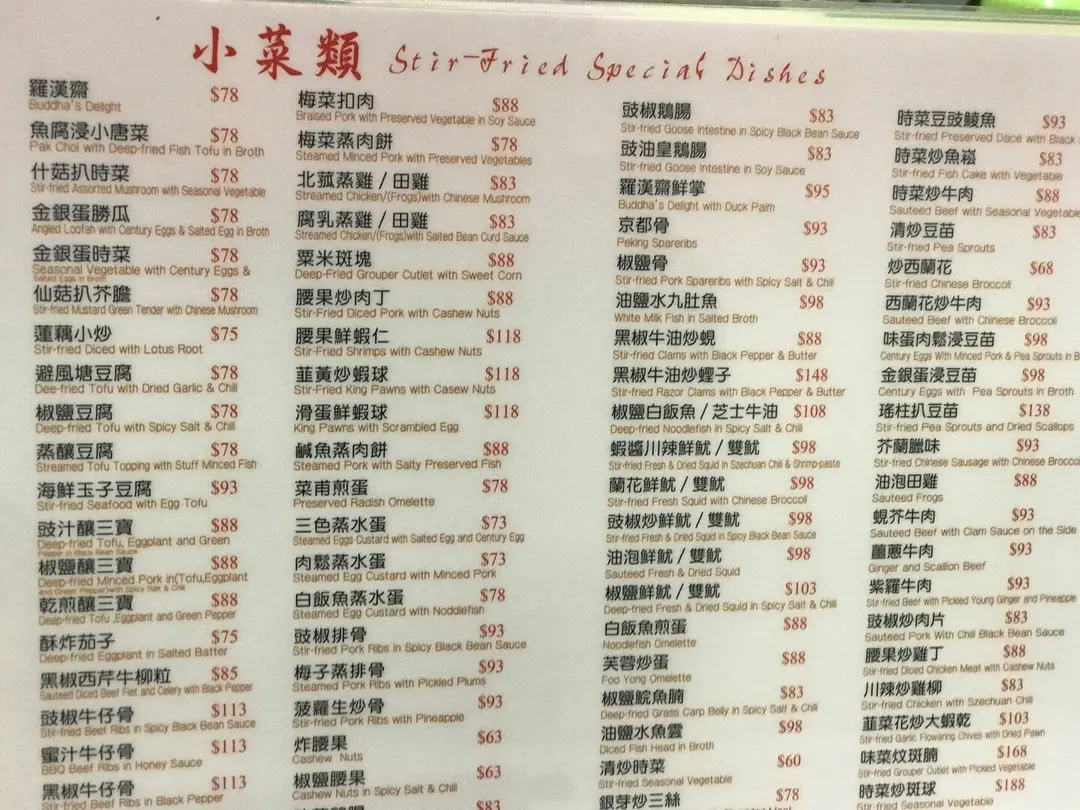 小菜類 Stir-Fried Special Dishes
羅漢齋 $78
Buddha's Delight
魚腐浸小唐菜 $78
Pak Choi with Deep-fried Fish Tofu in Broth
什菇扒時菜 $78
Stir-fried Assorted Mushroom with Seasonal Vegetable
金銀蛋勝瓜 $78
Angled Loofah with Century Eggs & Salted Egg in Broth
金銀蛋時菜 $78
Seasonal Vegetable with Century Eggs &
Salted Eggs in Broth
仙菇扒芥膽 $78
Stir-fried Mustard Green Tender with Chinese Mushroom
蓮藕小炒 $75
Stir-fried Diced with Lotus Root
避風塘豆腐 $78
Dee-fried Tofu with Dried Garlic & Chili
椒鹽豆腐 $78
Deep-fried Tofu with Spicy Salt & Chili
蒸釀豆腐 $78
Streamed Tofu Topping with Stuff Minced Fish
海鮮玉子豆腐 $93
Stir-fried Seafood with Egg Tofu
豉汁釀三寶 $88
Deep-fried Tofu, Eggplant and Green
Pepper in Black Bean Sauce
椒鹽釀三寶 $88
Deep-fried Minced Pork in(Tofu,Eggplant
and Green Pepper)with Spicy Salt & Chili
乾煎釀三寶 $88
Deep-fried Tofu ,Eggplant and Green Pepper
酥炸茄子 $75
Deep-fried Eggplant in Salted Batter
黑椒西芹牛柳粒 $85
Sauteed Diced Beef Filet and Celery with Black Pepper
豉椒牛仔骨 $113
Stir-fried Beef Ribs in Spicy Black Bean Sauce
蜜汁牛仔骨 $113
BBQ Beef Ribs in Honey Sauce
黑椒牛仔骨 $113
Stir-fried Beef Ribs in Black Pepper
梅菜扣肉 $88
Braised Pork with Preserved Vegetable in Soy Sauce
梅菜蒸肉餅 $78
Steamed Minced Pork with Preserved Vegetables
北菰蒸雞 / 田雞 $83
Streamed Chicken/(Frogs)with Chinese Mushroom
腐乳蒸雞 / 田雞 $83
Streamed Chicken/(Frogs)with Salted Bean Curd Sauce
粟米斑塊 $88
Deep-Fried Grouper Cutlet with Sweet Corn
腰果炒肉丁 $88
Stir-Fried Diced Pork with Cashew Nuts
腰果鮮蝦仁 $118
Stir-Fried Shrimps with Cashew Nuts
韮黃炒蝦球 $118
Stir-Fried King Pawns with Casew Nuts
滑蛋鮮蝦球 $118
King Pawns with Scrambled Egg
鹹魚蒸肉餅 $88
Steamed Pork with Salty Preserved Fish
菜甫煎蛋 $78
Preserved Radish Omelette
三色蒸水蛋 $73
Steamed Eggs Custard with Salted Egg and Century Egg
肉鬆蒸水蛋 $73
Steamed Egg Custard with Minced Pork
白飯魚蒸水蛋 $78
Steamed Egg Custard with Noddlefish
豉椒排骨 $93
Stir-fried Pork Ribs in Spicy Black Bean Sauce
梅子蒸排骨 $93
Steamed Pork Ribs with Pickled Plums
菠蘿生炒骨 $93
Stir-fried Pork Ribs with Pineapple
炸腰果 $63
Cashew Nuts
椒鹽腰果 $63
Cashew Nuts in Spicy Salt & Chili
$83
豉椒鵝腸 $83
Stir-fried Goose Intestine in Spicy Black Bean Sauce
豉油皇鵝腸 $83
Stir-fried Goose Intestine in Soy Sauce
羅漢齋鮮掌 $95
Buddha's Delight with Duck Palm
京都骨 $93
Peking Spareribs
椒鹽骨 $93
Stir-fried Pork Spareribs with Spicy Salt & Chili
油鹽水九肚魚 $98
White Milk Fish in Salted Broth
黑椒牛油炒蜆 $88
Stir-fried Clams with Black Pepper & Butter
黑椒牛油炒蟶子 $148
Stir-fried Razor Clams with Black Pepper & Butter
椒鹽白飯魚 / 芝士牛油 $108
Deep-fried Noodlefish in Spicy Salt & Chili
蝦醬川辣鮮魷 / 雙魷 $98
Stir-fried Fresh & Dried Squid in Szechuan Chili & Shrimp-paste
蘭花鮮魷 / 雙魷 $98
Stir-fried Fresh Squid with Chinese Broccoli
豉椒炒鮮魷 / 雙魷 $98
Stir-fried Fresh & Dried Squid in Spicy Black Bean Sauce
油泡鮮魷 / 雙魷 $98
Sauteed Fresh & Dried Squid
椒鹽鮮魷 / 雙魷 $103
Deep-fried Fresh & Dried Squid in Spicy Salt & Chili
白飯魚煎蛋 $88
Noodlefish Omelette
芙蓉炒蛋 $88
Foo Yong Omelette
椒鹽鯇魚腩 $83
Deep-fried Grass Carp Belly in Spicy Salt & Chili
油鹽水魚雲 $98
Diced Fish Head in Broth
清炒時菜 $60
Stir-fried Seasonal Vegetable
銀芽炒三絲 $78
時菜豆豉鯪魚 $93
Stir-fried Preserved Dace with Black
時菜炒魚崧 $83
Stir-fried Fish Cake with Vegetable
時菜炒牛肉 $88
Sauteed Beef with Seasonal Vegetable
清炒豆苗 $83
Stir-fried Pea Sprouts
炒西蘭花 $68
Stir-fried Chinese Broccoli
西蘭花炒牛肉 $93
Sauteed Beef with Chinese Broccoli
味蛋肉鬆浸豆苗 $98
Century Eggs With Minced Pork & Pea Sprouts in B
金銀蛋浸豆苗 $98
Century Eggs with Pea Sprouts in Broth
瑤柱扒豆苗 $138
Stir-fried Pea Sprouts and Dried Scallops
芥蘭臘味 $93
Stir-fried Chinese Sausage with Chinese Broccoli
油泡田雞 $88
Sauteed Frogs
蜆芥牛肉 $93
Sauteed Beef with Clam Sauce on the Side
薑蔥牛肉 $93
Ginger and Scallion Beef
紫羅牛肉 $93
Stir-fried Beef with Pickled Young Ginger and Pineapple
豉椒炒肉片 $83
Sauteed Pork With Chili Black Bean Sauce
腰果炒雞丁 $88
Stir-fried Diced Chicken Meat with Cashew Nuts
川辣炒雞柳 $83
Stir-fried Chicken with Szechuan Chili
韮菜花炒大蝦乾 $103
Stir-fried Garlic Flowaring Chives with Dried Pawn
味菜炆斑腩 $168
Stir-fried Grouper Outlet with Pickled Vegetable
時菜炒斑球 $188
Stir-fried Seasonal Vegetable